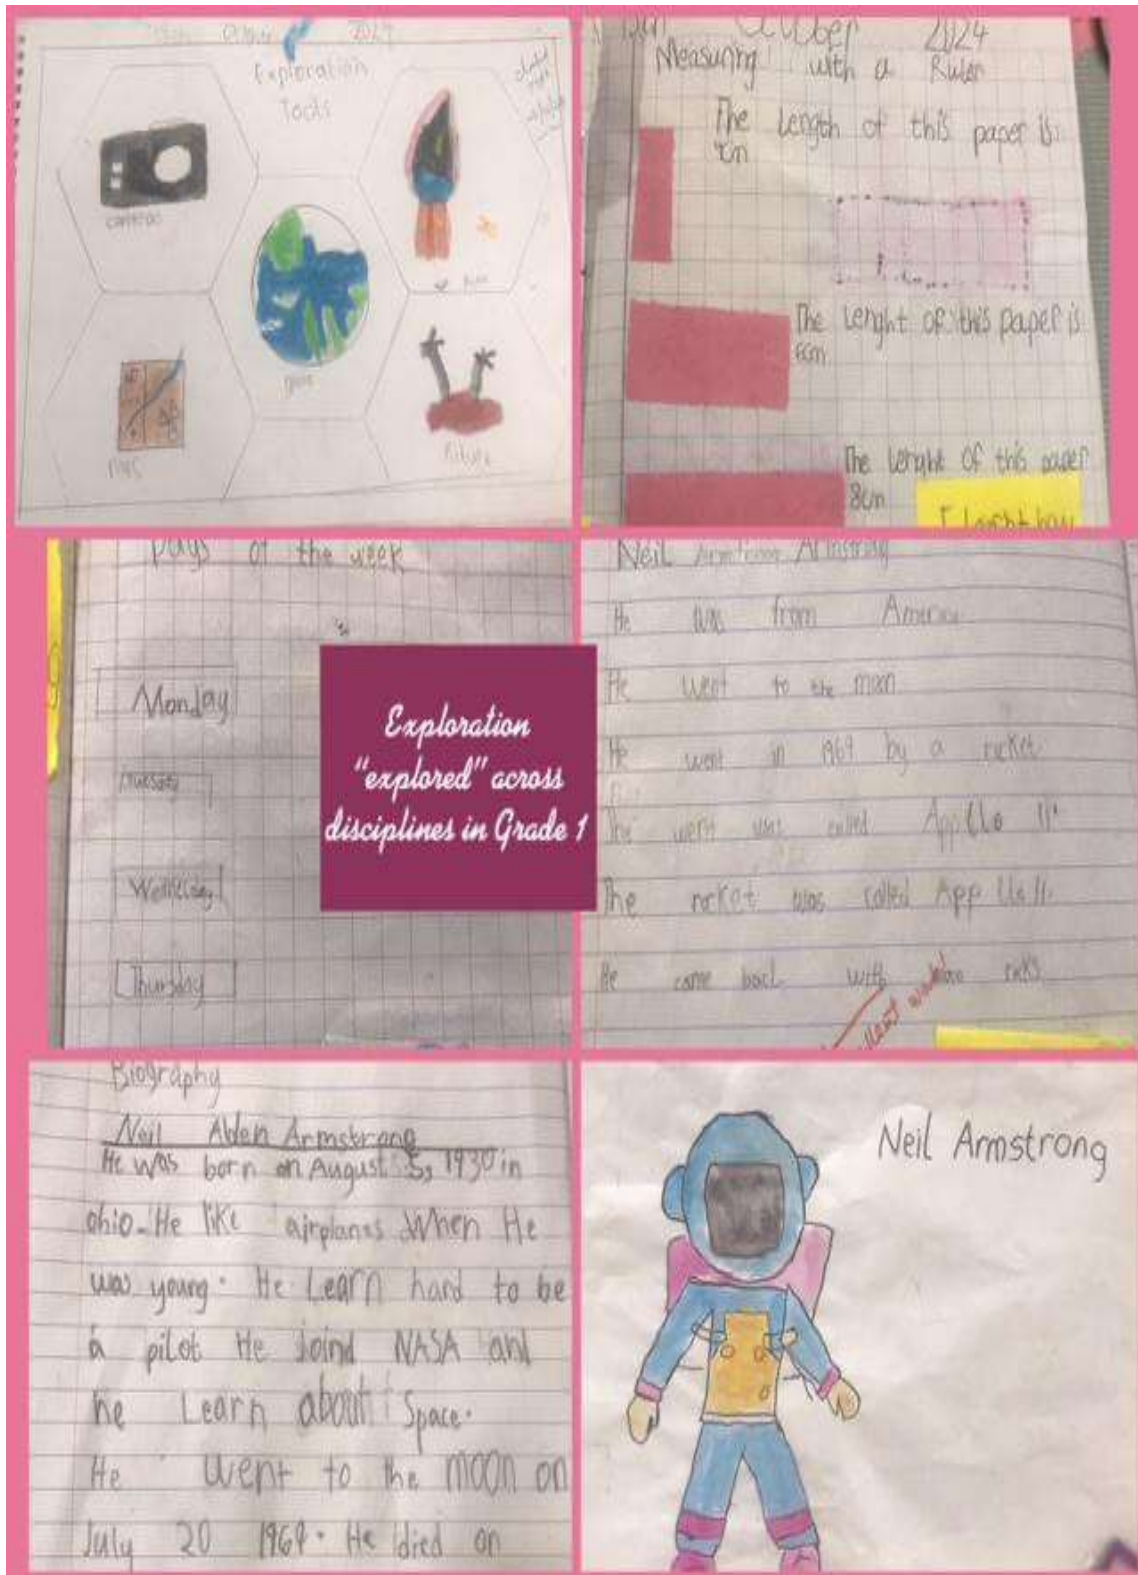 October 2024
Exploration
Tools
camera
future
October 2024
Measuring with a Ruler
The Length of this paper is
cm
The Lenght of this paper is
6cm
The Lenght of this paper
8cm
Days of the week
Monday
Wednesday
Thursday
Exploration
"explored" across
disciplines in Grade 1
Neil Armstrong Armstrong
He was from America
He went to the moon
He went in 1969 by a rocket
The went was called App 11
The rocket was called App 11.
He came back with rocks
work!
Biography
Neil Alden Armstrong
He was born on August 5, 1930 in
ohio. He like airplanes When He
was young. He Learn hard to be
a pilot He Joind NASA and
he Learn about Space.
He went to the moon on
July 20 1969. He died on
Neil Armstrong